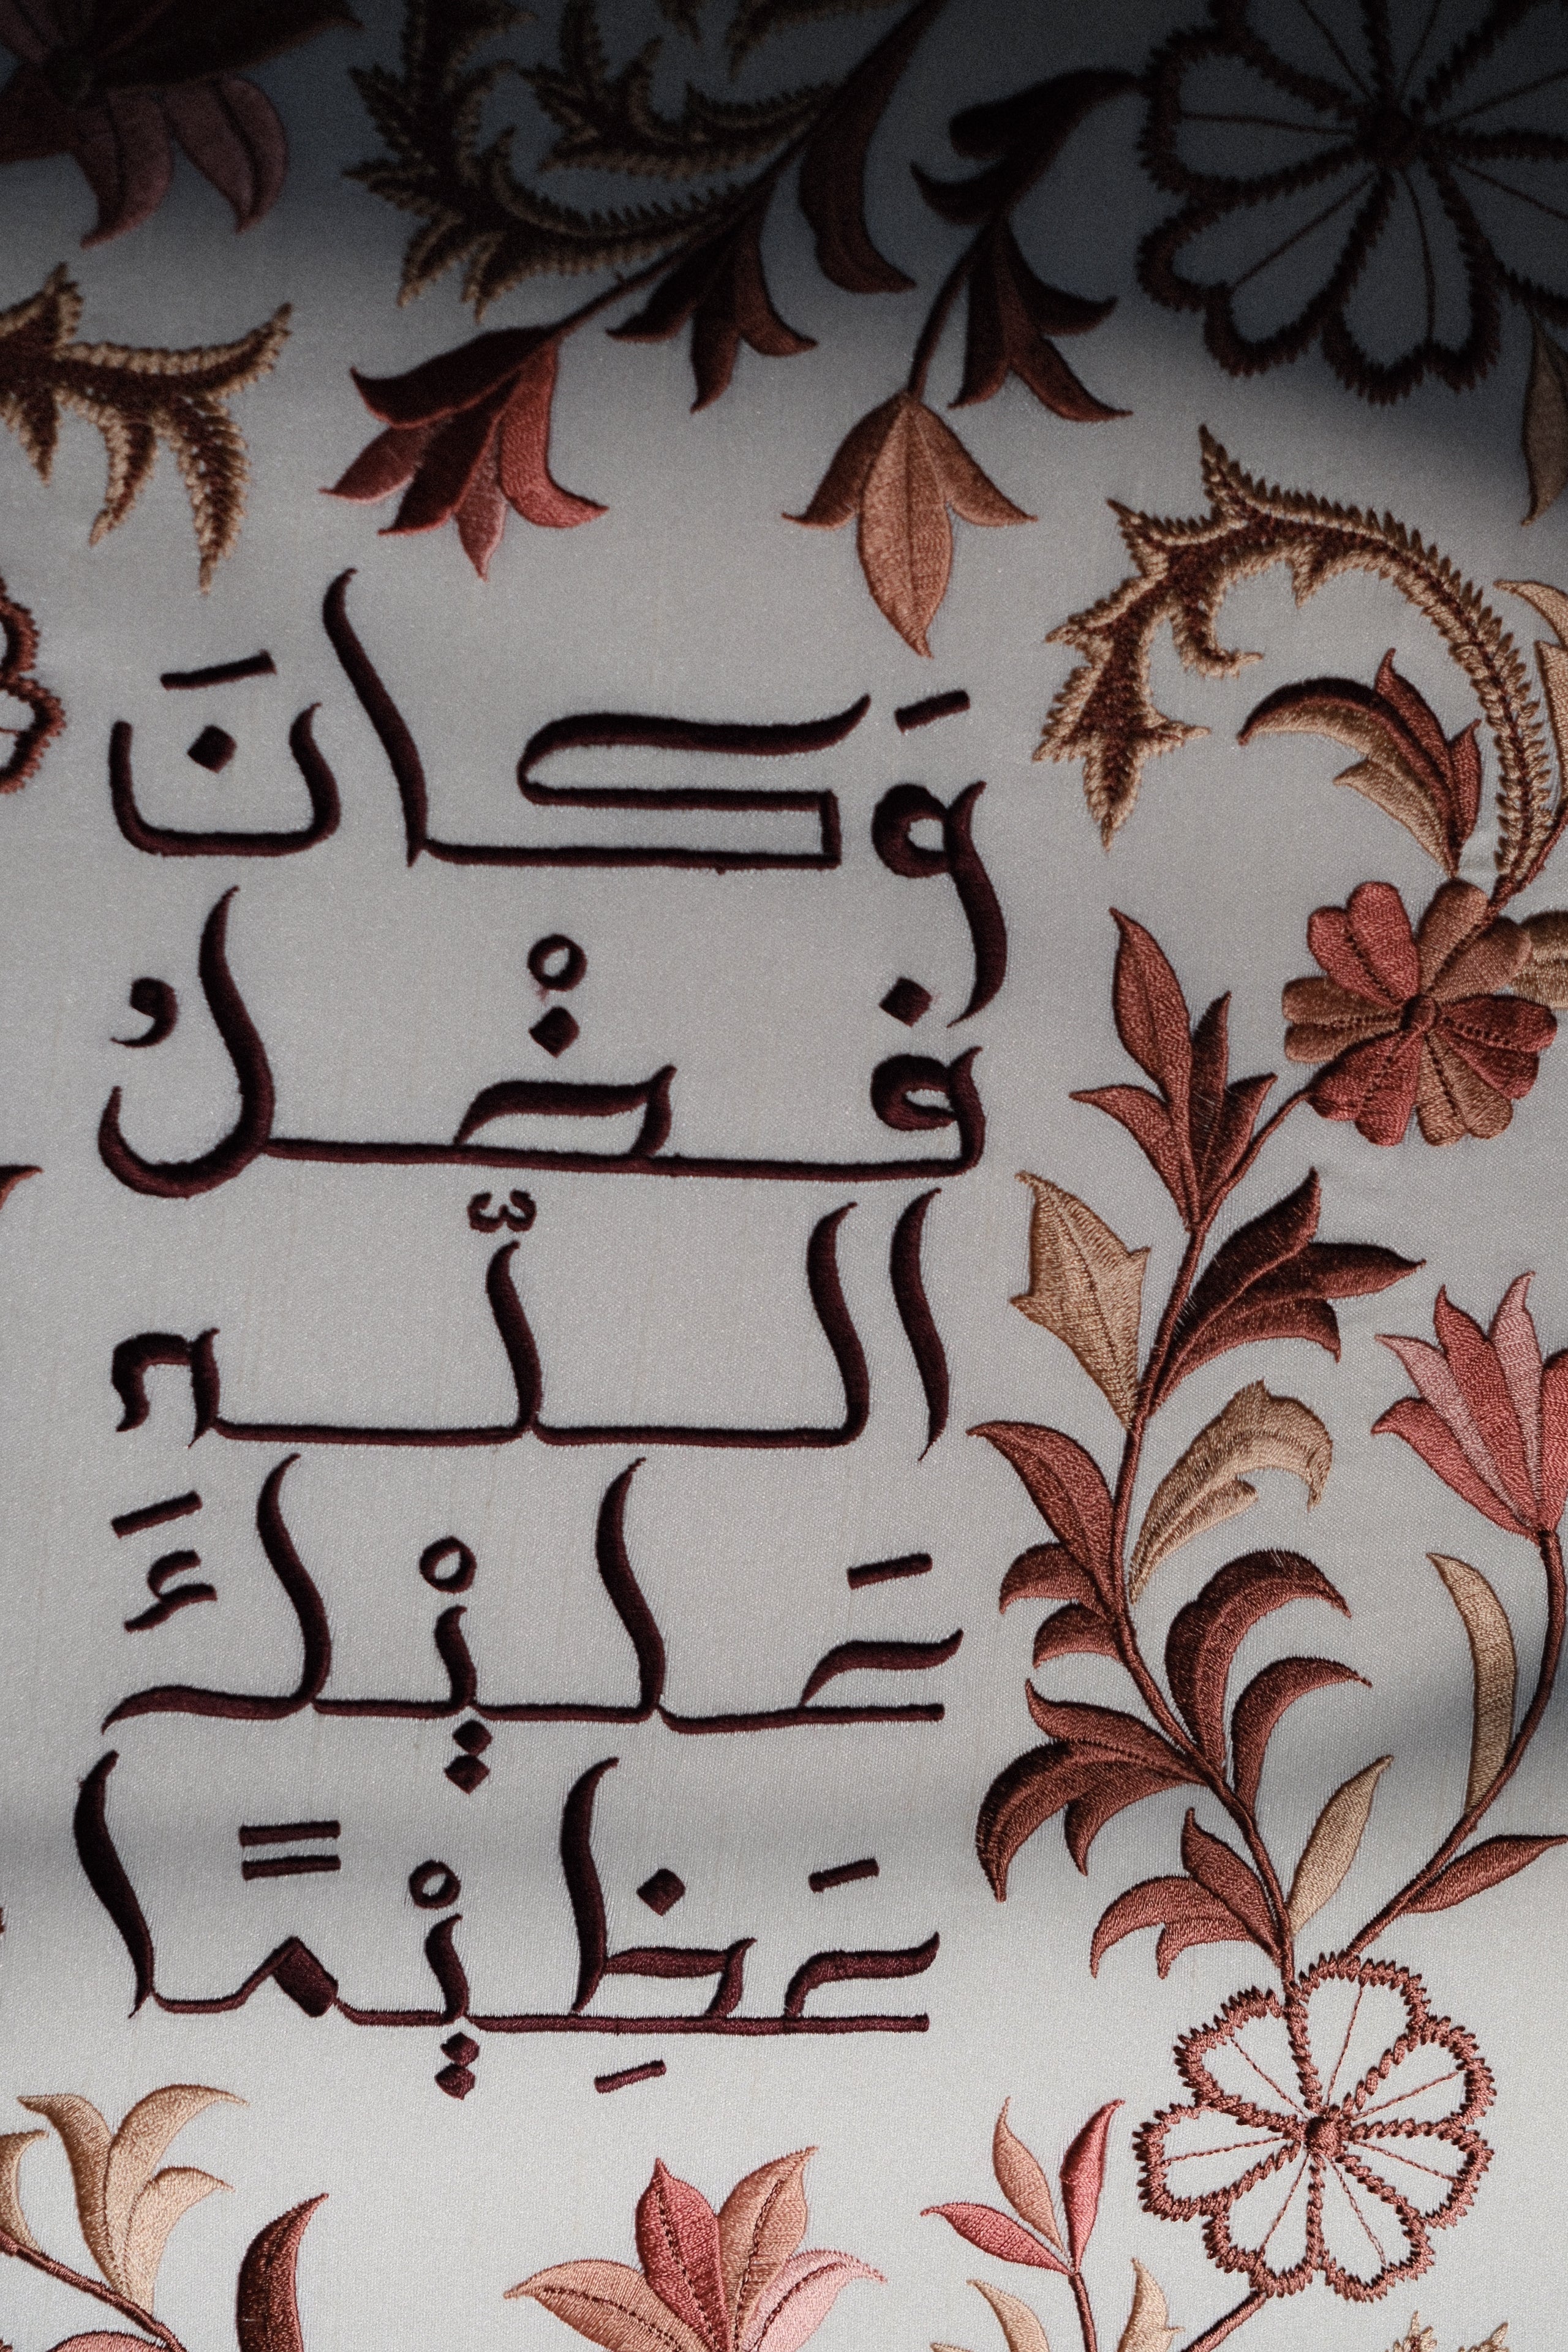 وَكَانَ
فَضْلُ
اللّه
عَلَيْكَ
عَظِيْمًا